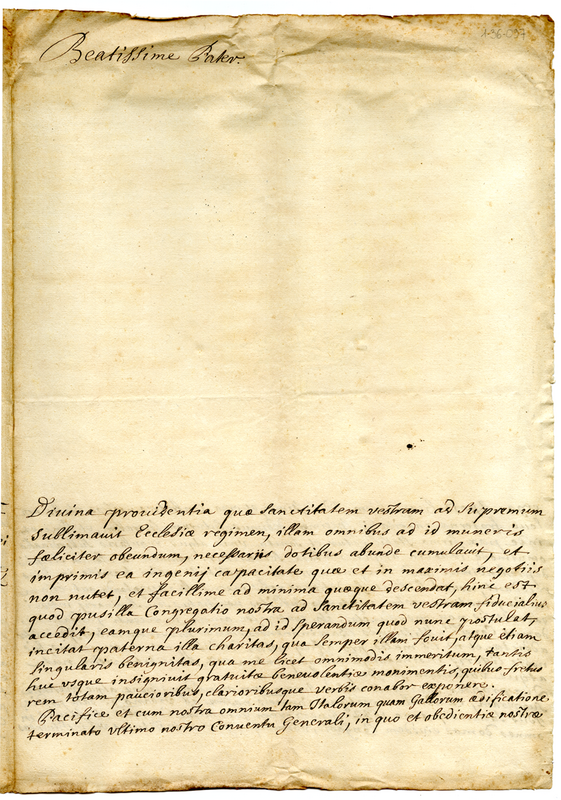 1-36-097
Beatissime Pater.
Divina providentia quæ Sanctitatem vestram ad Supremum
sublimauit Ecclesiæ regimen, illam omnibus ad id muneris
fæliciter obeundum, necessarijs dotibus abunde cumulauit, et
imprimis ea ingenij capacitate quæ et in maximis negotiis
non nutet, et facillime ad minima quæque descendat, hinc est
quod pusilla Congregatio nostra ad Sanctitatem vestram fiducialius
accedit, eamque plurimum, ad id sperandum quod nunc postulat,
incitat paterna illa charitas, qua semper illam fouit, atque etiam
singularis benignitas, qua me licet omnimodis immeritum, tantis
huc vsque insigniuit gratuitæ beneuolentiæ monimentis, quibus fretus
rem totam paucioribus, clarioribusque verbis conabor exponere.
Pacifice et cum nostra omnium tam Italorum quam Gallorum ædificatione
terminato vltimo nostro Conuentu Generali, in quo et obedientiæ nostræ